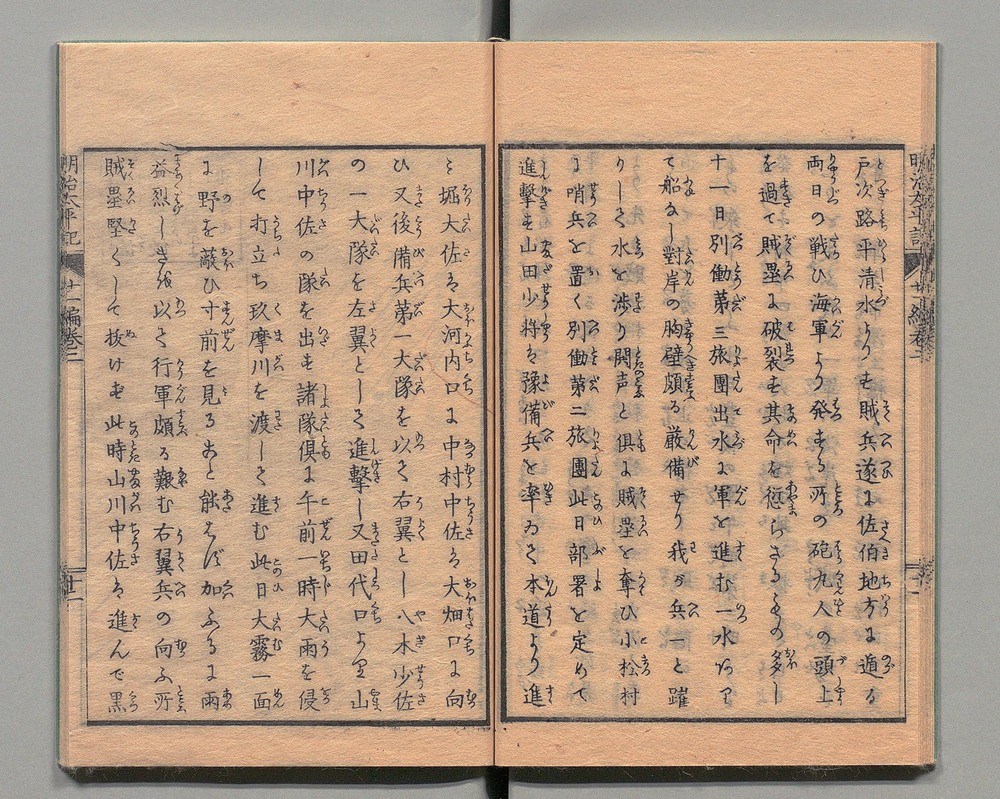 戸次路平清水よりも賊兵遂に佐伯地方に遁る
両日の戦ひ海軍より発する所の砲丸人の頭上
を過て賊塁に破裂も其命を愆らざるもの多し
十一日別働第三旅團出水に軍を進む一水ありて
て船なし對岸の胸壁頗る厳備せり我が兵一と躍
りして水を渉り鬨声と倶に賊塁を奪ひ小松村
に哨兵を置く別働第二旅團此日部署を定めて
進撃も山田少将は豫備兵を率ゐて本道より進
み堀大佐は大河内口に中村中佐は大畑口に向
ひ又後備兵第一大隊を以て右翼とし八木少佐
の一大隊を左翼として進撃し又田代口より山
川中佐の隊を出も諸隊倶に午前一時大雨を侵
して打立ち玖摩川を渡して進む此日大霧一面
に野を蔽ひ寸前を見ること能はず加ふるに雨
益烈しきを以て行軍頗る難む右翼兵の向ふ所
賊塁堅くして抜けも此時山川中佐は進んで黒
明治太平記
廿一編巻二
十二